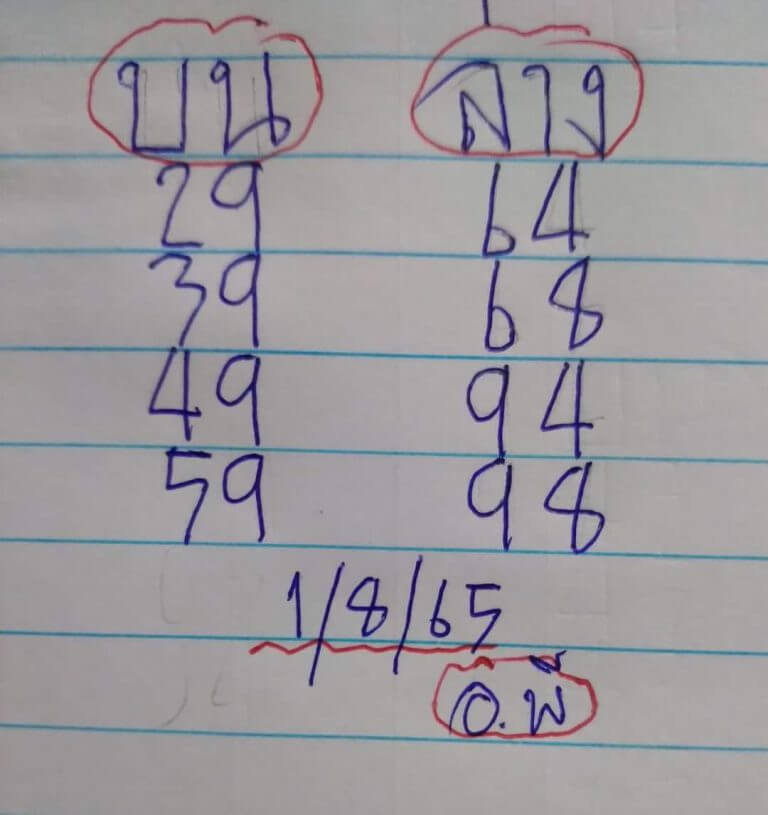 บน ล่าง
29 64
39 68
49 94
59 98
1/8/65
อ.พี